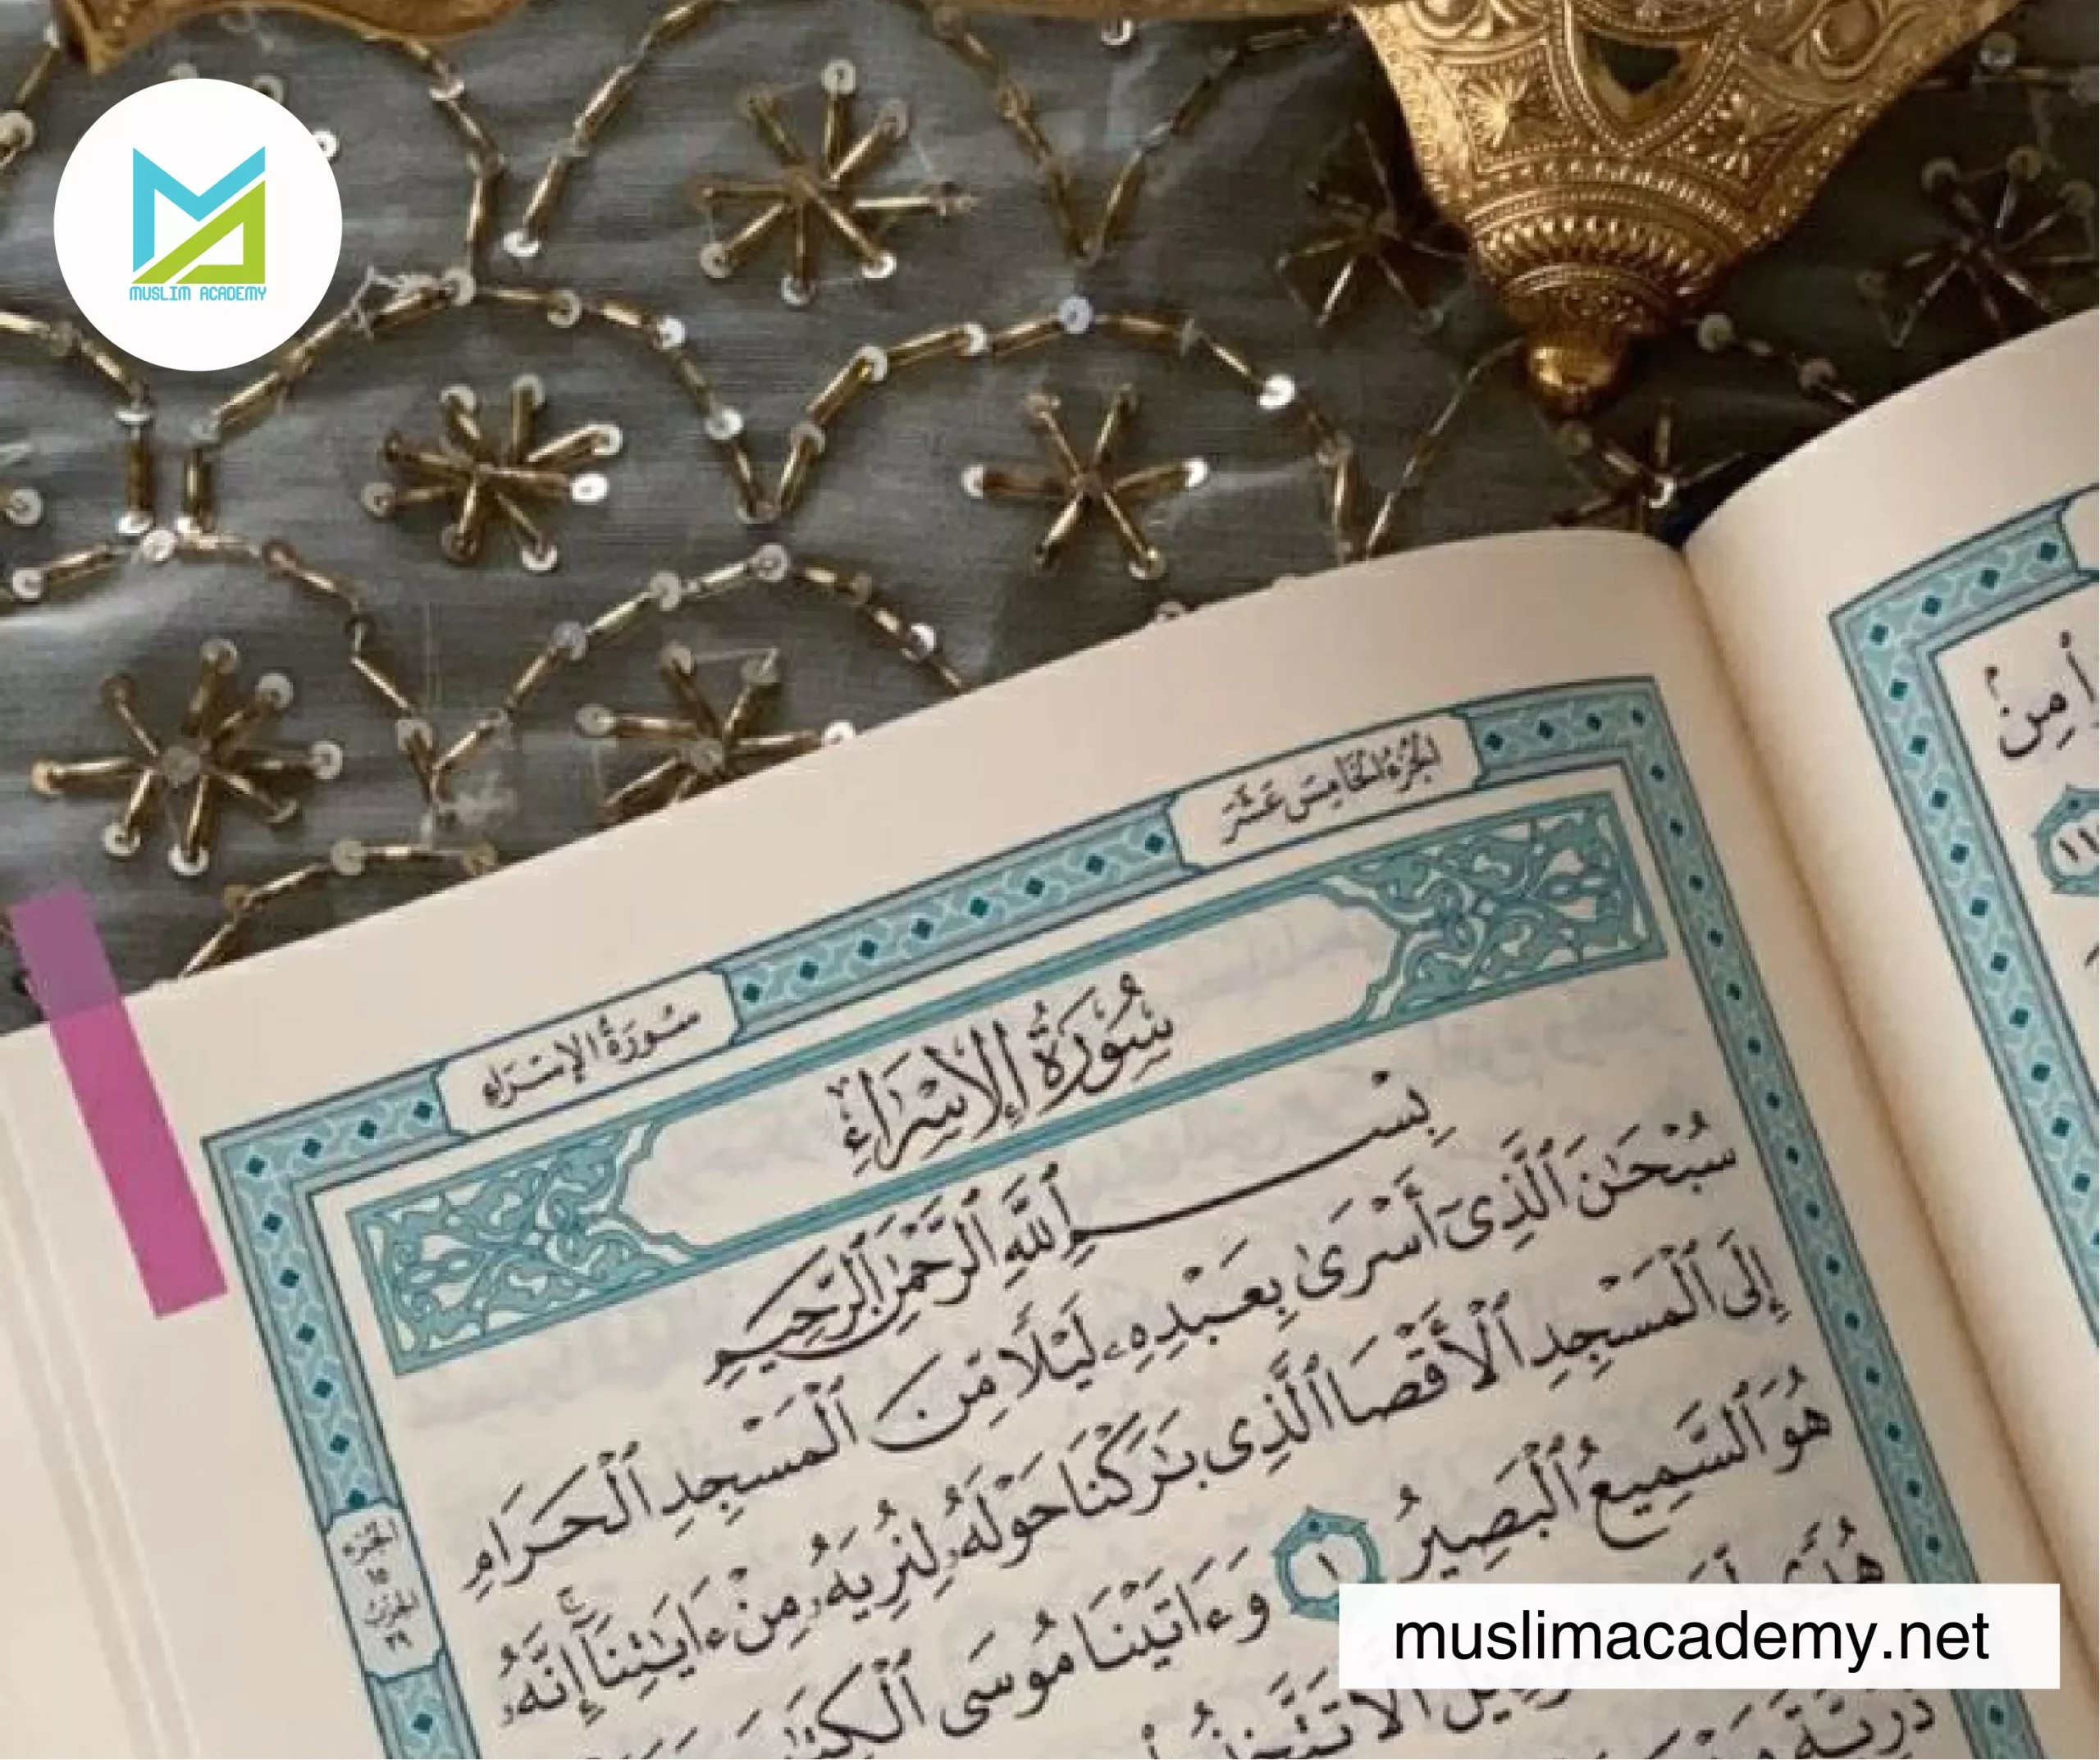 MUSLIM ACADEMY
الجزء الخامس عشر
سورة الإسراء
سُورَةُ الإِسْرَاءِ
بِسْمِ ٱللَّهِ ٱلرَّحْمَٰنِ ٱلرَّحِيمِ
سُبْحَٰنَ ٱلَّذِىٓ أَسْرَىٰ بِعَبْدِهِۦ لَيْلًا مِّنَ ٱلْمَسْجِدِ ٱلْحَرَامِ
إِلَى ٱلْمَسْجِدِ ٱلْأَقْصَا ٱلَّذِى بَٰرَكْنَا حَوْلَهُۥ لِنُرِيَهُۥ مِنْ ءَايَٰتِنَآ إِنَّهُۥ
هُوَ ٱلسَّمِيعُ ٱلْبَصِيرُ ١ وَءَاتَيْنَا مُوسَى ٱلْكِتَٰبَ
هُدًى
أَلَّا تَتَّخِذُوا۟
ذُرِّيَّةَ
الجزء
١٥
الحزب
٢٩
مِنْ
١١
muslimacademy.net